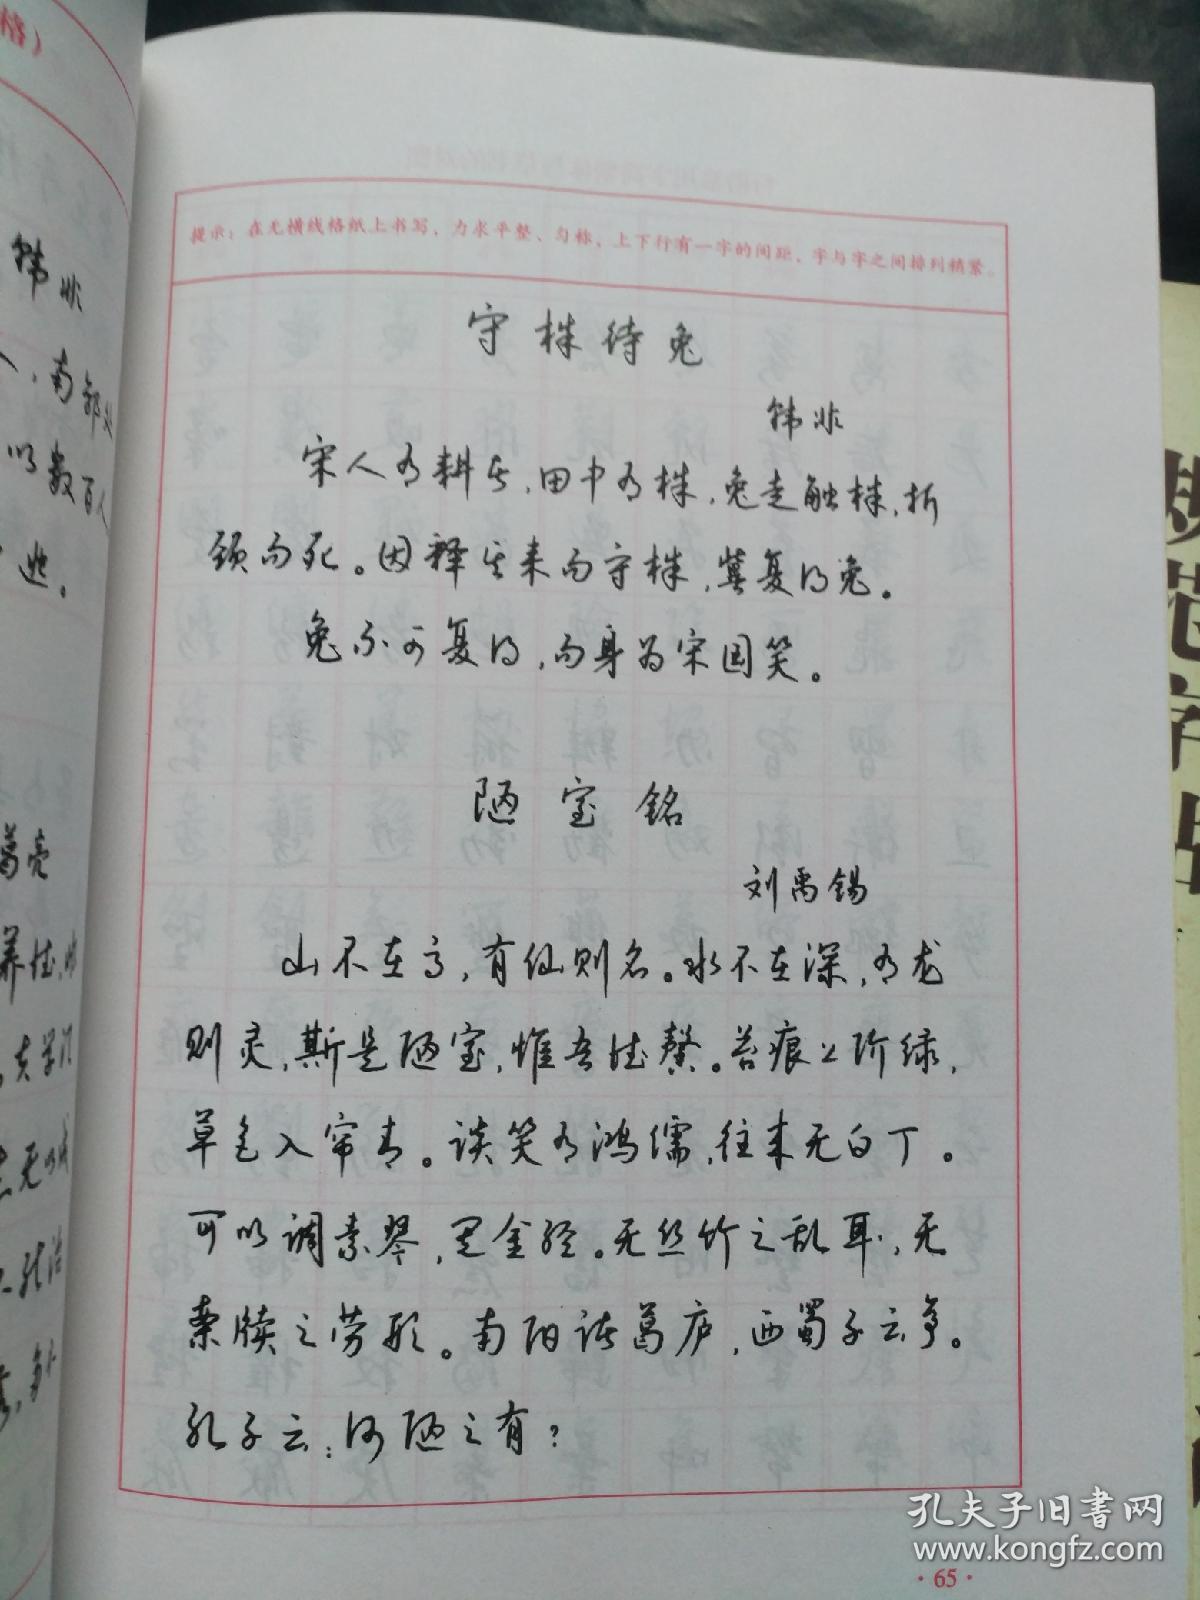 格）
韩非
南郭处
以数百人
逃。
葛亮
养德，
夫学
无以
提示：在无横线格纸上书写，力求平整、匀称，上下行有一字的间距，字与字之间排列稍紧。
守株待兔
韩非
宋人有耕者，田中有株，兔走触株，折
颈而死。因释其耒而守株，冀复得兔。
兔不可复得，而身为宋国笑。
陋室铭
刘禹锡
山不在高，有仙则名。水不在深，有龙
则灵，斯是陋室，惟吾德馨。苔痕上阶绿，
草色入帘青。谈笑有鸿儒，往来无白丁。
可以调素琴，阅金经。无丝竹之乱耳，无
案牍之劳形。南阳诸葛庐，西蜀子云亭。
孔子云：何陋之有？
·65·
规范字
孔夫子旧书网
www.kongfz.com